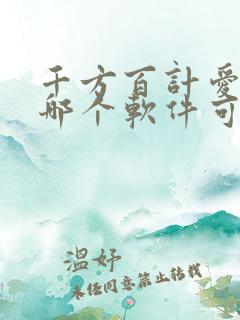 千方百計愛
哪个軟件可
溫妤
未经同意禁止转载